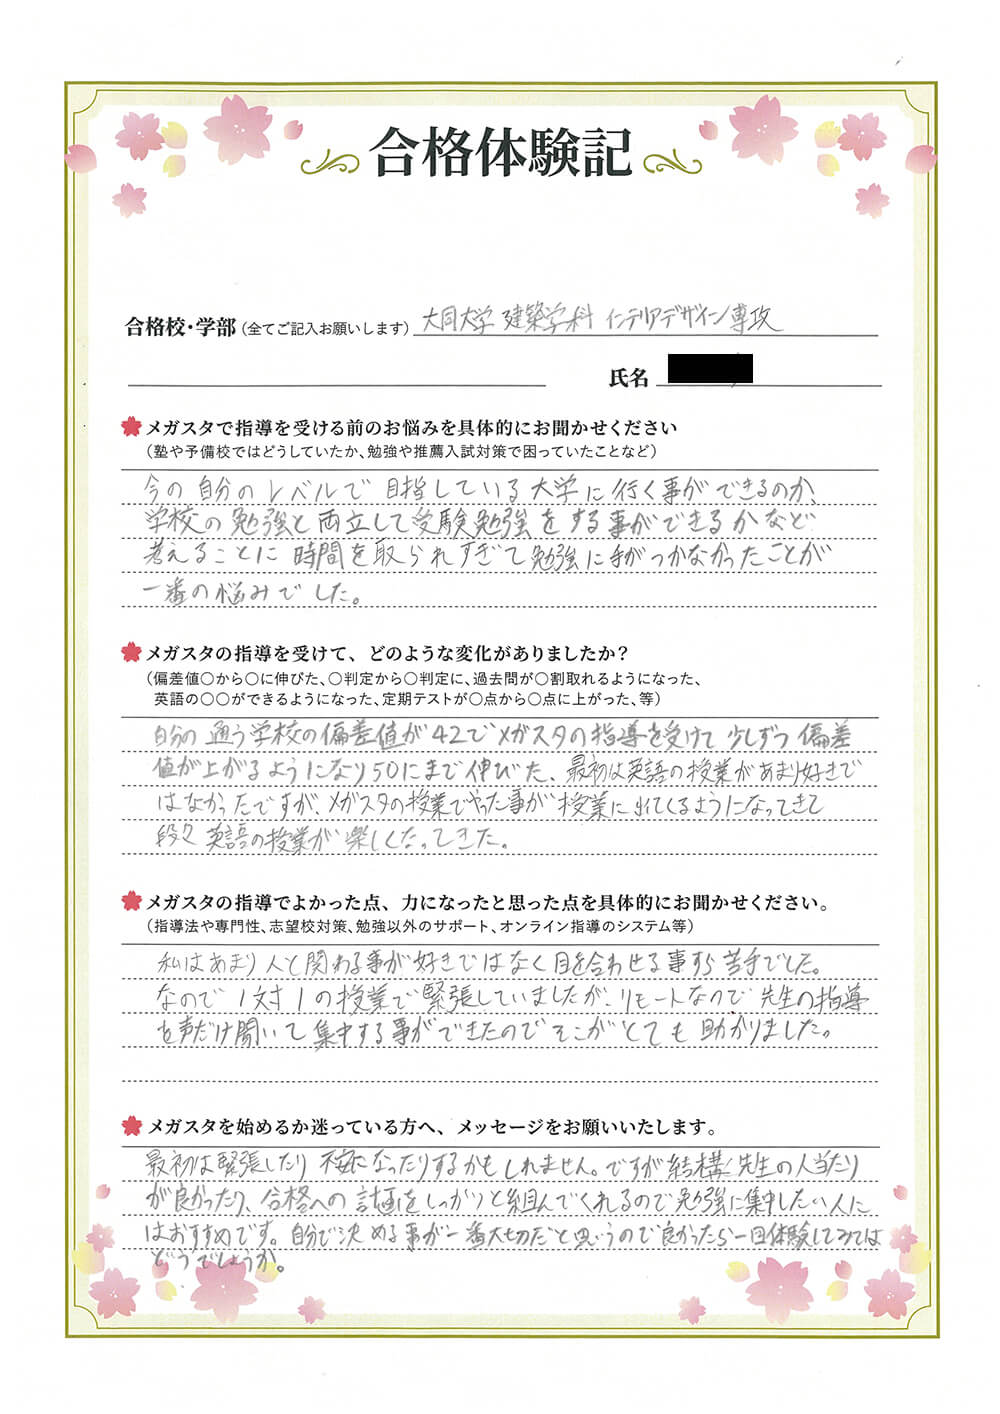 合格体験記
合格校・学部(全てご記入お願いします) 大同大学 建築学科 インテリアデザイン専攻
氏名
メガスタで指導を受ける前のお悩みを具体的にお聞かせください
(塾や予備校ではどうしていたか、勉強や推薦入試対策で困っていたことなど)
今の自分のレベルで目指している大学に行く事ができるのか、
学校の勉強と両立して受験勉強をする事ができるかなど
考えることに時間を取られすぎて勉強に手がつかなかったことが
一番の悩みでした。
メガスタの指導を受けて、どのような変化がありましたか?
(偏差値○から○に伸びた、○判定から○判定に、過去問が○割取れるようになった、
英語の○○ができるようになった、定期テストが○点から○点に上がった、等)
自分の通う学校の偏差値が42でメガスタの指導を受けて少しずつ偏差
値が上がるようになり50にまで伸びた、最初は英語の授業があまり好きで
はなかったですが、メガスタの授業でやった事が授業に出てくるようになってきて
段々英語の授業が楽しくなってきた。
メガスタの指導でよかった点、力になったと思った点を具体的にお聞かせください。
(指導法や専門性、志望校対策、勉強以外のサポート、オンライン指導のシステム等)
私はあまり人と関わる事が好きではなく目を合わせる事すら苦手でした。
なので1対1の授業で緊張していましたが、リモートなので先生の指導
を声だけ聞いて集中する事ができたのでそこがとても助かりました。
メガスタを始めるか迷っている方へ、メッセージをお願いいたします。
最初は緊張したり不安になったりするかもしれません。ですが結構先生の人当たり
が良かったり、合格への計画をしっかりと組んでくれるので勉強に集中したい人に
はおすすめです。自分で決める事が一番大切だと思うので良かったら一回体験してみては
どうでしょうか。